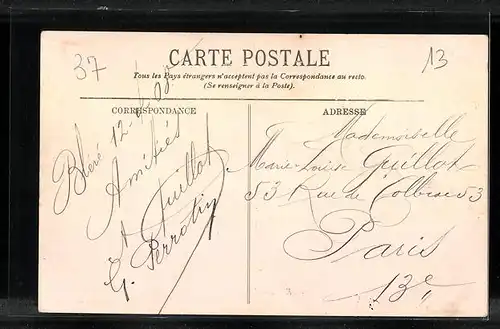 37
13
CARTE POSTALE
Tous les Pays étrangers n'acceptent pas la Correspondance au recto.
(Se renseigner à la Poste).
CORRESPONDANCE
ADRESSE
Bléré 12-
Amitiés
Guillot
G. Perrotin
Mademoiselle
Marie-Louise Guillot
53 Rue de Colbiac 53
Paris
13e